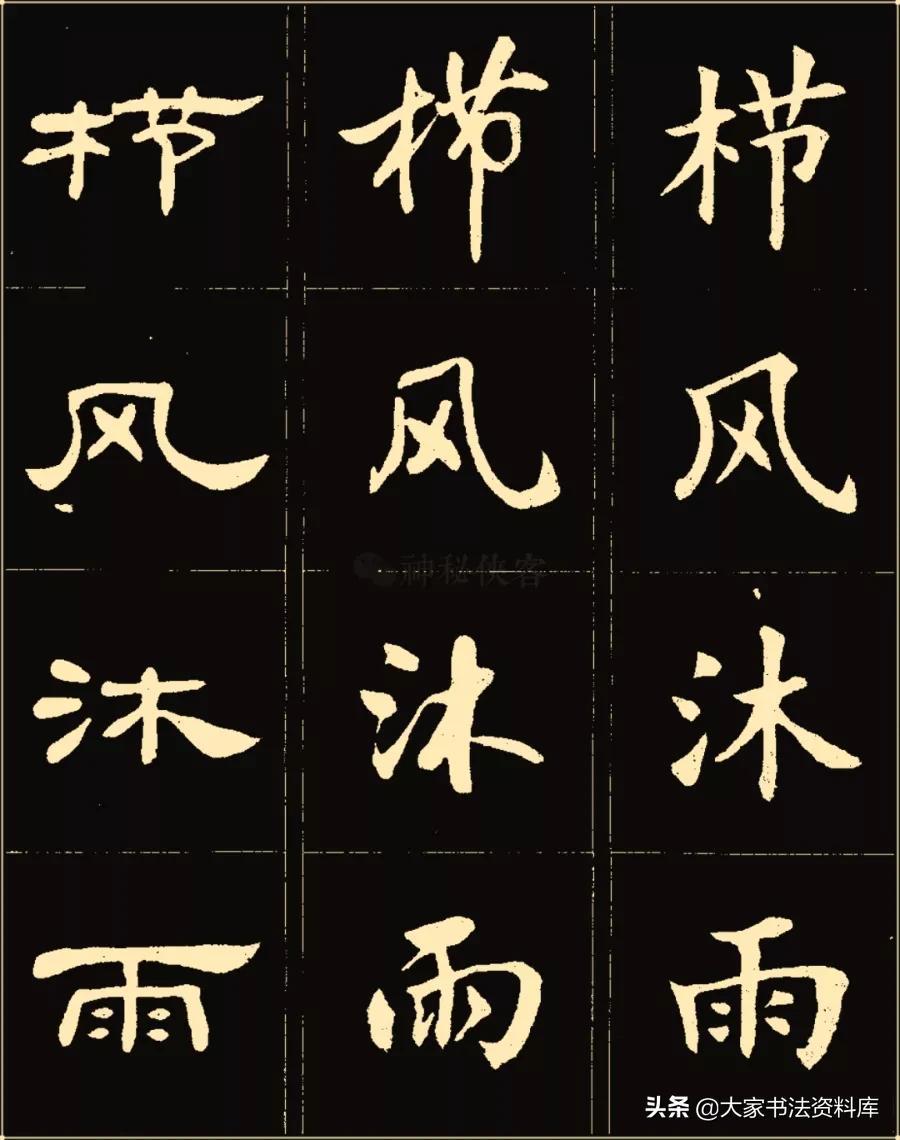 栉 栉 栉
风 风 风
沐 沐 沐
雨 雨 雨
神秘侠客
头条 @大家书法资料库